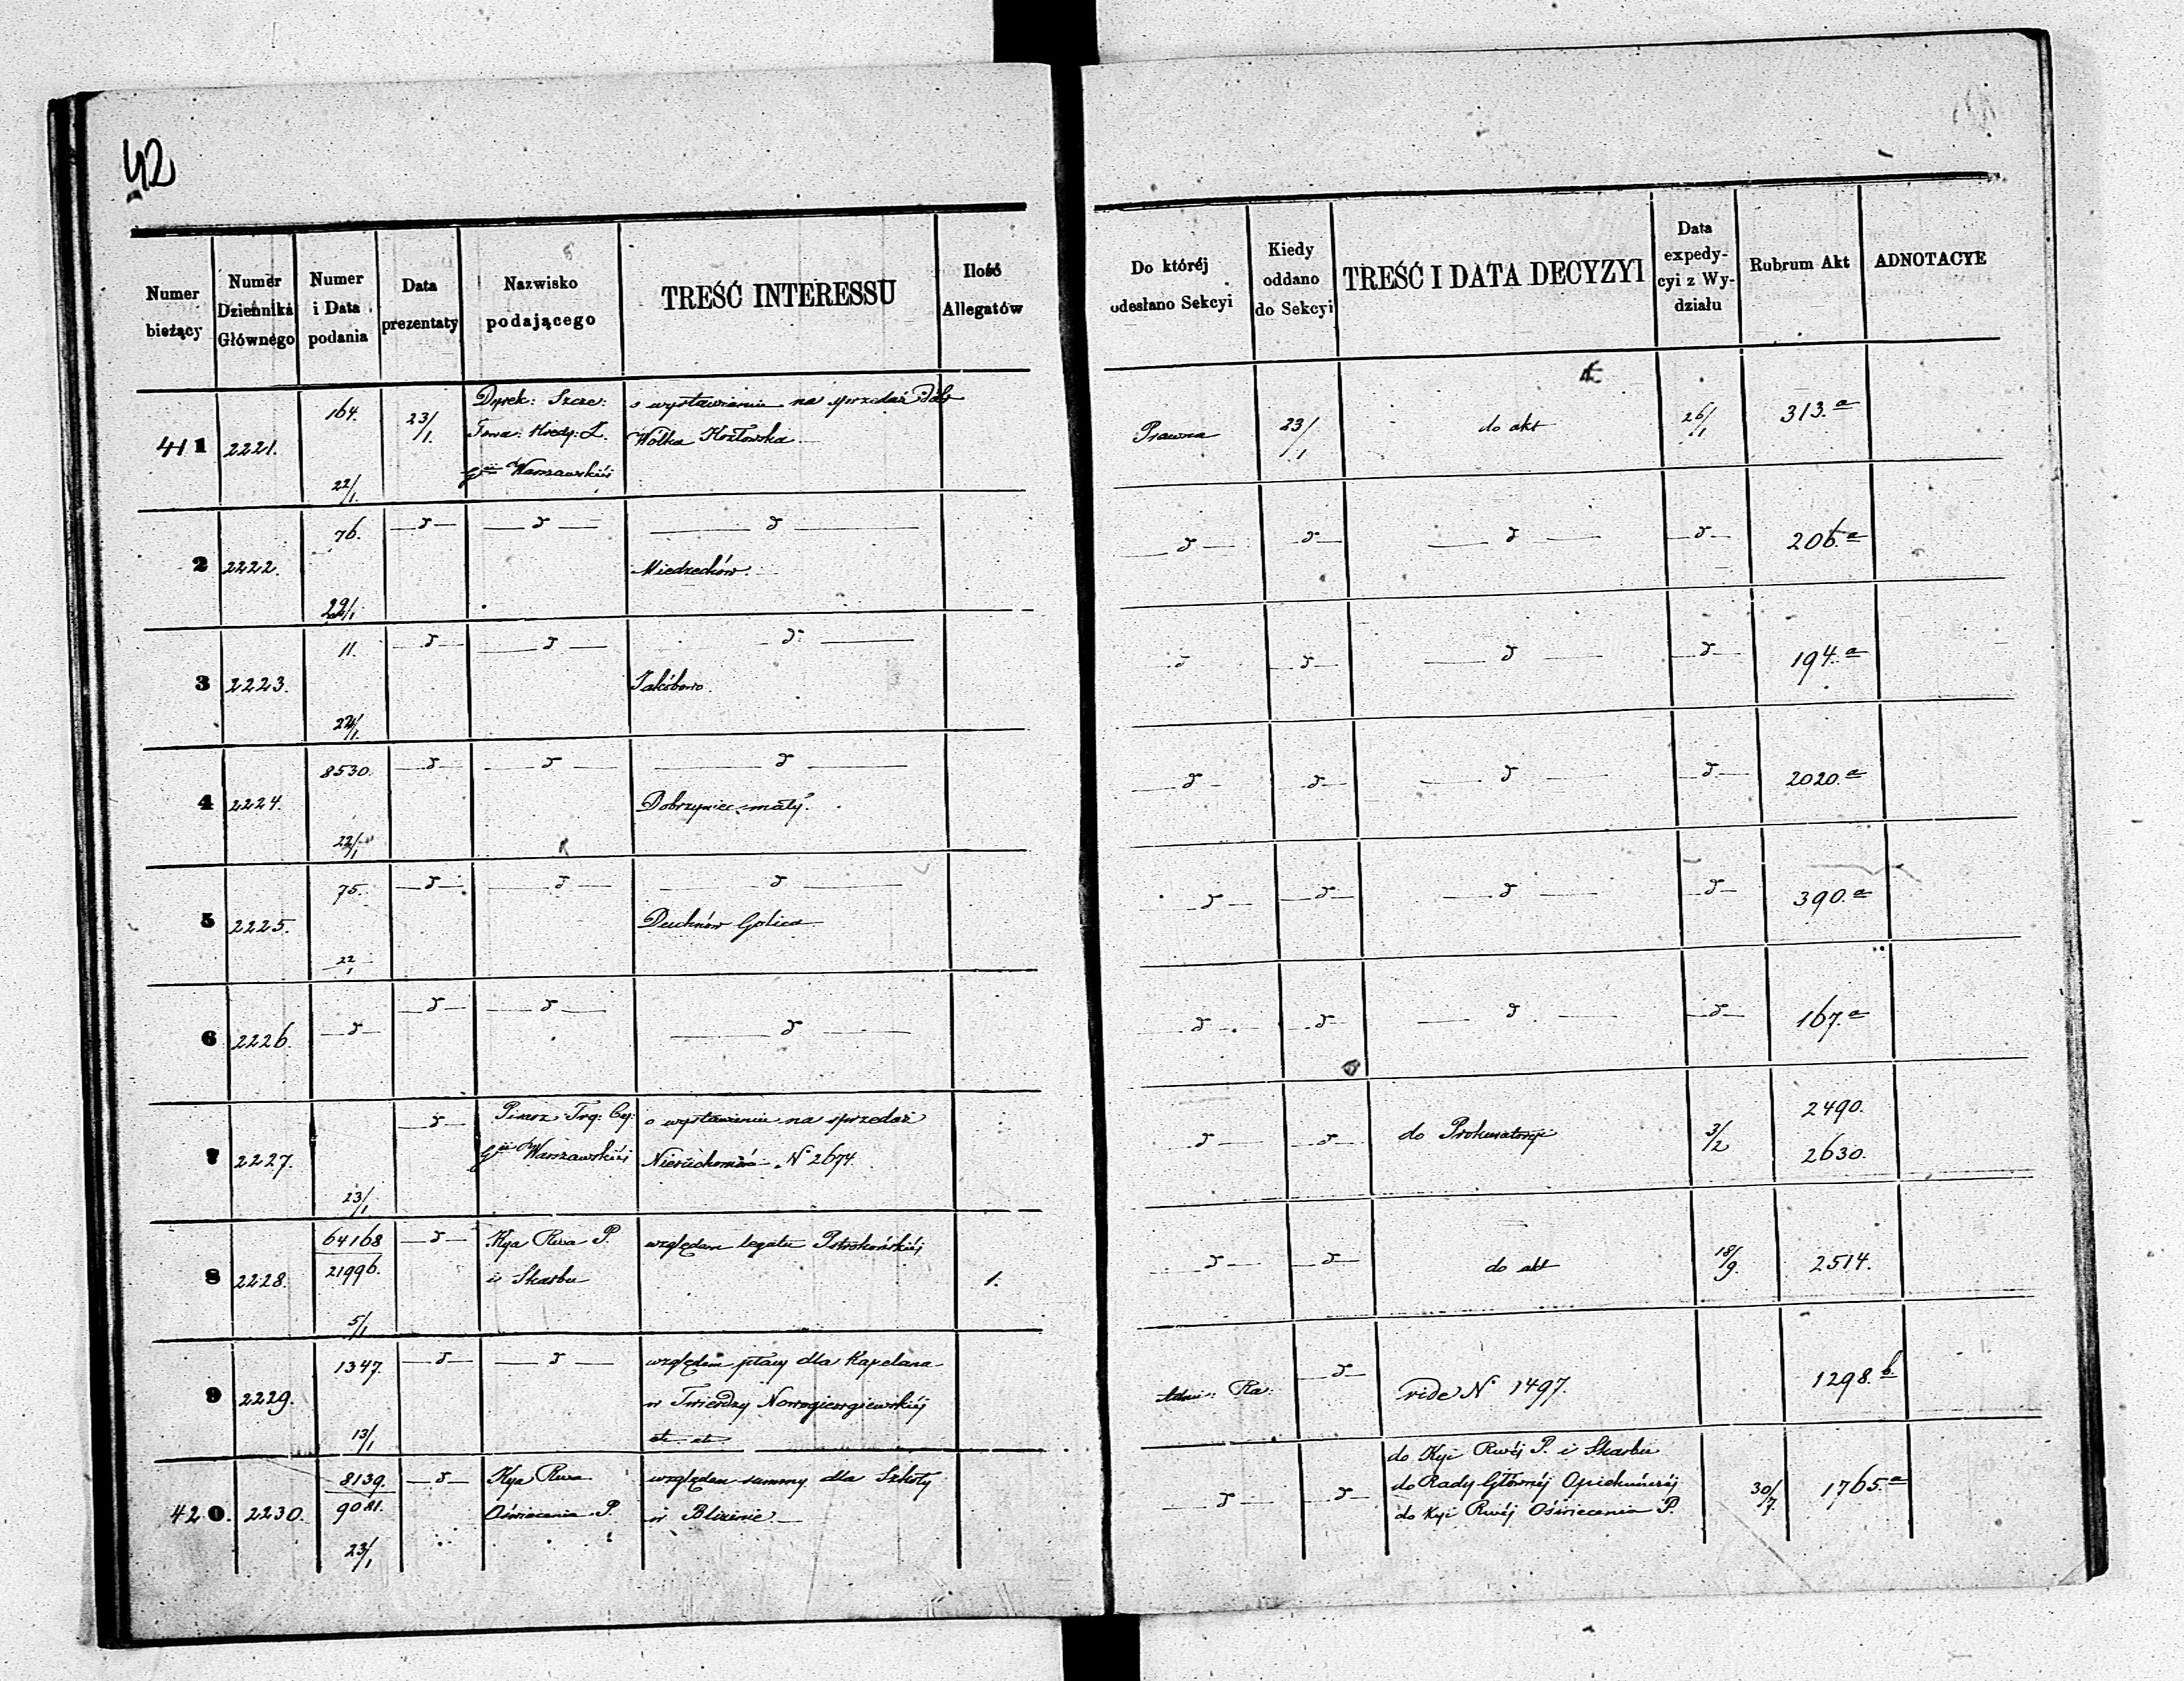 42
Numer bieżący | Numer Dziennika Głównego | Numer i Data podania | Data prezentaty | Nazwisko podającego | TREŚĆ INTERESSU | Ilość Allegatów | Do któréj odesłano Sekcyi | Kiedy oddano do Sekcyi | TREŚĆ I DATA DECYZYI | Data expedycyi z Wydziału | Rubrum Akt | ADNOTACYE
411 | 2221. | 164. 22/1. | 23/1. | Dyrek: Szcze: Towa: Kredy: Z. Gii Warszawskiéj | o wystawieniu na sprzedaż dóbr Wólka Kozłowska | | Prawna | 23/1 | do akt | 26/1 | 313.a
2 | 2222. | 76. 22/1. | d | d | d Miedzechów. | | d | d | d | d | 206.a
3 | 2223. | 11. 22/1. | d | d | d Jakóbowo. | | d | d | d | d | 194.a
4 | 2224. | 8530. 22/1 | d | d | d Dobrzyniec mały. | | d | d | d | d | 2020.a
5 | 2225. | 75. 22/1 | d | d | d Duchnów Golice | | d | d | d | d | 390.a
6 | 2226. | d | d | d | d | | d | d | d | d | 167.a
7 | 2227. | 23/1 | d | Pisarz Tryb: Cy: Gii Warszawskiéj | o wystawieniu na sprzedaż Nieruchomości N° 2674. | | d | d | do Prokuratoryi | 3/2 | 2490. 2630.
8 | 2228. | 64168 21996. 5/1 | d | Kya Rwa P. i Skarbu | względem legatu | 1. | d | d | do akt | 18/9. | 2514.
9 | 2229. | 1347. 13/1 | d | d | względem płacy dla Kapelana w Twierdzy Nowogieorgiewskiéj etc. etc. | | Admi: Ra: | d | vide N° 1497. | | 1298.b
420. | 2230. | 8139. 9081. 23/1 | d | Kya Rwa Oświecenia P. | względem summy dla Szkoły w Bliznie | | d | d | do Kyi Rwéj P. i Skarbu do Rady Głównéj Opiekuńczéj do Kyi Rwéj Oświecenia P. | 30/7. | 1765.a